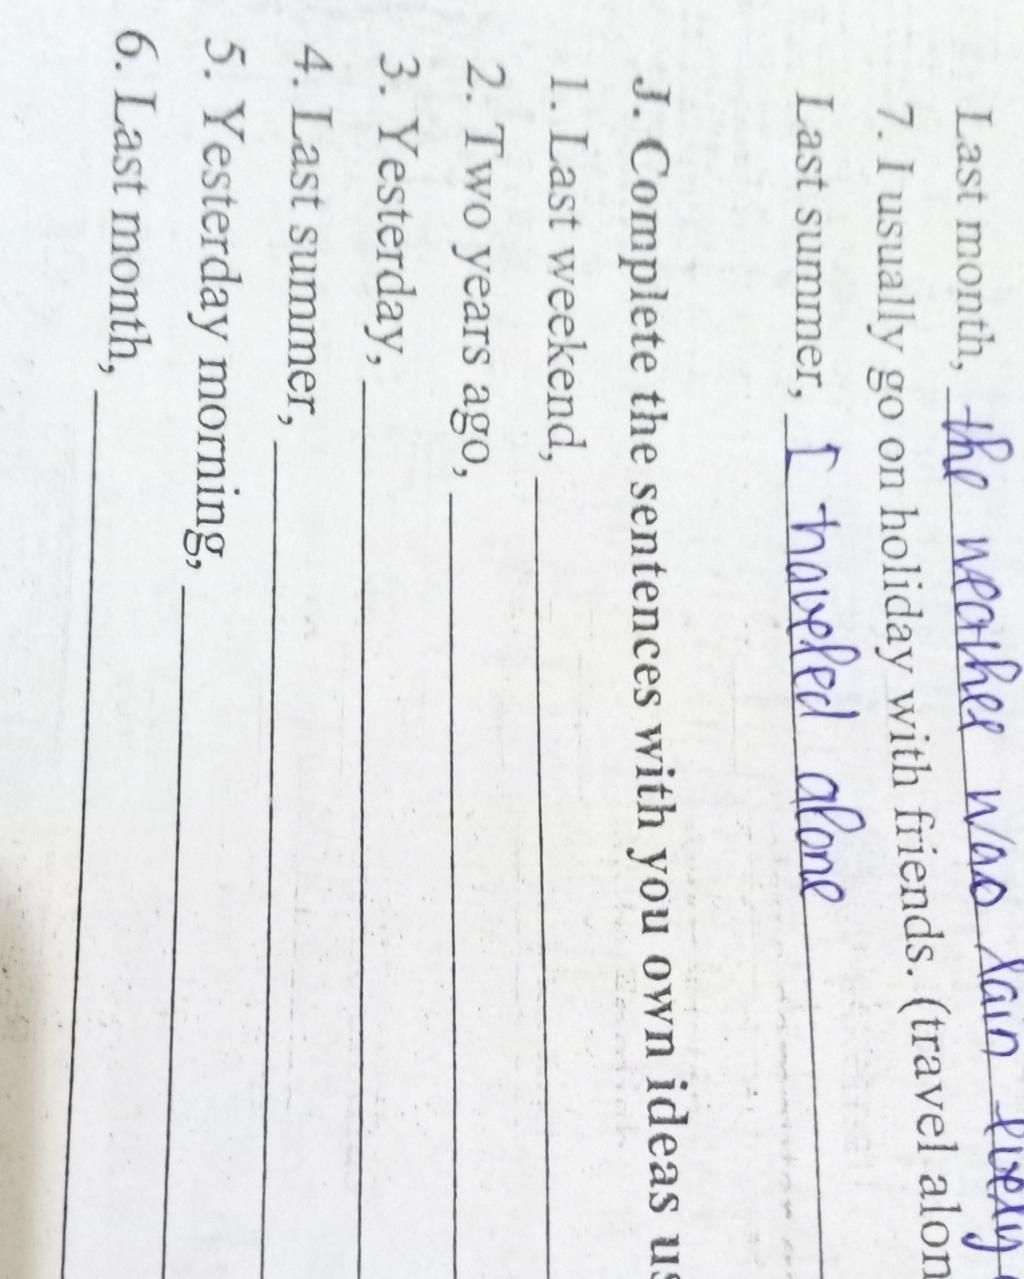 Last month, the weather was rain every
7. I usually go on holiday with friends. (travel alon
Last summer, I traveled alone
J. Complete the sentences with you own ideas us
1. Last weekend,
2. Two years ago,
3. Yesterday,
4. Last summer,
5. Yesterday morning,
6. Last month,